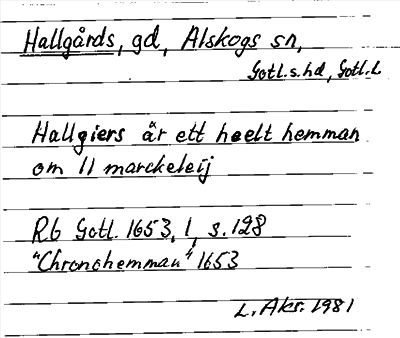 Hallgårds, gd, Alskogs sn,
Gotl. s. hd, Gotl. l.
Hallgiers är ett heelt hemman
om 11 marckeleij
Rb Gotl. 1653, 1, s. 128
"Chronohemman" 1653
L. Akr. 1981